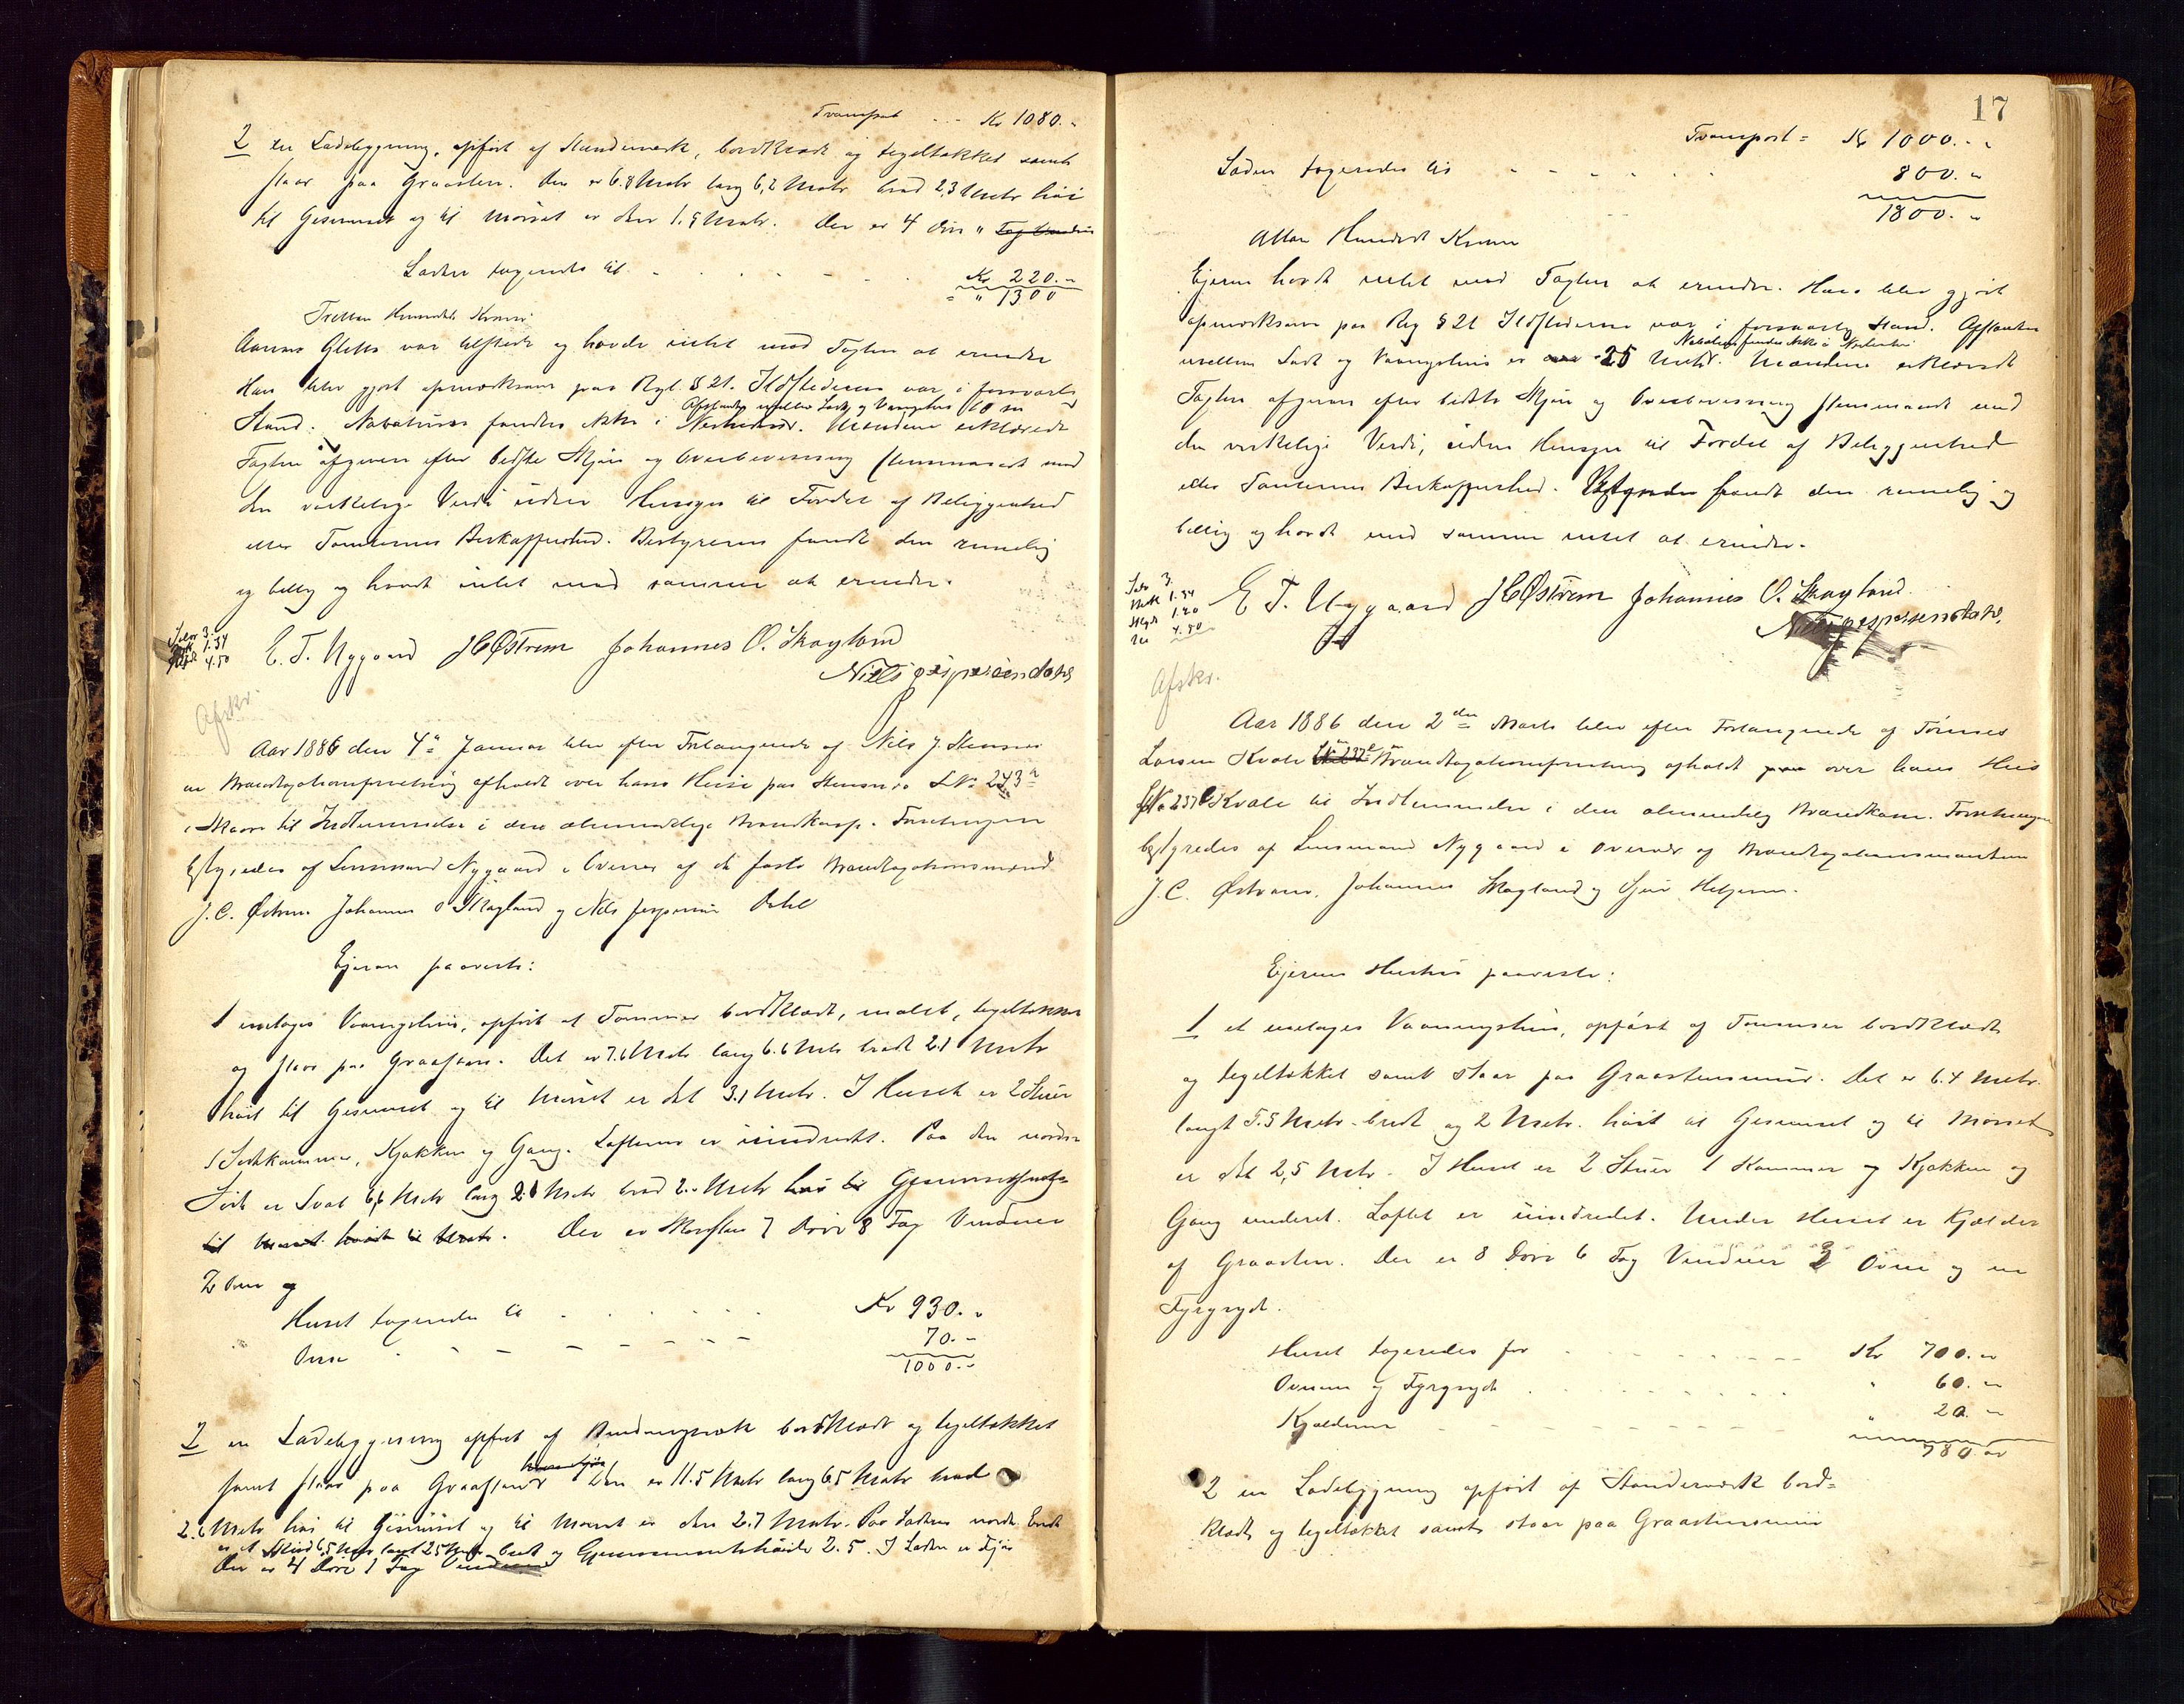 Transport - - - Kr 1080.-
2 en Ladebygning, opført af Standerverk, bordklædt og tegltækket samt
staar paa Graasten. Den er 6.8 Metr lang 6,2 Metr bred 2,3 Metr høi
til Gesimset og til Mønset er den 1.9 Metr. Der er 4 Døre " Fag Vinduer
Laden taxeredes til - - - - Kr 220.-
= " 1300
Tretten Hundrede Kroner
Aanen var tilstede og havde intet mod Taxten at erindre
Han blev gjort opmærksom paa Regl. § 21. Ildstederne var i forsvarlig
Afstanden mellem Lade og Vaaningshus 10 m
Stand. Naboehuse fandtes ikke i Nærheden. Mændene erklærede
Taxten afgiven efter bedste Skjøn og Overbevisning stemmende med
den virkelige Verdi uden Hensyn til Fordel af Beliggenhed
eller Tomternes Beskaffenhed. Bestyreren fandt den rimelig
og billig og havde intet mod samme at erindre.
3.
1.34
4.50
E. T. Nygaard JCØstrem Johannes O. Skogland
Niels Jespersen Dahl
Afskr.
Aar 1886 den 4de Januar blev efter Forlangende af Nils J. Stensnes
en Brandtaxationsforretning afholdt over hans Huse paa Stensnes LNo 273a
i Skaare til Indlemmelse i den almindelige Brandkasse. Forretningen
bestyredes af Lensmand Nygaard i Overvær af de faste Brandtaxationsmænd
J. C. Østrem Johannes O Skogland og Nils Jespersen Dahl
Ejeren paaviste:
1 enetages Vaaningshus, opført af Tømmer bordklædt, malet, tegltækket
og staar paa Graasten. Det er 7.6 Metr lang 6.6 Metr bredt 2.1 Metr
høit til Gesimset og til Mønset er det 3.1 Metr. I Huset er 2 Stuer
1 Sidekammer, Kjøkken og Gang. Lofterne er uindredt. Paa den nordre
Side er Sval 6,6 Metr lang 2.1 Metr bred 2.- Metr høi til Gesimset
til Mønset. Der er Skorsten 7 Døre 8 Fag Vinduer
2 Ovne og
Huset taxeredes til - - - - - Kr 930.-
Ovne - - - - - - 70.-
1000.-
2 en Ladebygning opført af Bindingsværk bordklædt og tegltækket
samt staar paa Graasten Den er 11.5 Metr lang 6.5 Metr bred
2.6 Metr høi til Gesimset og til Mønset er den 2.7 Metr. Paa Ladens nordre Ende
er et Skur 6,5 Metr langt 2.5 Metr bredt og Gjennemsnitshøide 2.5. I Laden er Fjøs
Der er 4 Døre 1 Fag Vinduer
17
Transport = Kr 1000.-
Laden taxeredes til - - - - - - 800.-
1800.-
Atten Hundrede Kroner
Ejeren havde intet mod Taxten at erindre. Han blev gjort
opmærksom paa Reg § 21 Ildstederne var i forsvarlig Stand. Afstanden
Nabohuse findes ikke i Nærheden
mellem Lade og Vaaningshus er 25 Metr. Mændene erklærede
Taxten afgiven efter bedste Skjøn og Overbevisning stemmende med
den virkelige Verdi, uden Hensyn til Fordel af Beliggenhed
eller Tomternes Beskaffenhed. Bestyreren fandt den rimelig og
billig og havde mod samme intet at erindre.
3.
1.34
1.20
4.80
E T. Nygaard JCØstrem Johannes O. Skogland.
Niels Jespersen Dahl.
Afskr.
Aar 1886 den 2den Marts blev efter Forlangende af Tønnes
Larsen Kvale Brandtaxationsforretning afholdt over hans Hus
LNo 237 Kvale til Indlemmelse i den almindelig Brandkasse. Forretningen
bestyredes af Lensmand Nygaard i Overvær af Brandtaxationsmændene
J. C. Østrem, Johannes Skogland og Sjur
Ejerens Hustru paaviste:
1 et enetages Vaaningshus, opført af Tømmer bordklædt
og tegltækket samt staar paa Graastensmur. Det er 6.4 Metr.
langt 5.5 Metr bredt og 2 Metr. høit til Gesimset og til Mønset
er det 2,5 Metr. I Huset er 2 Stuer 1 Kammer og Kjøkken og
Gang underet. Loftet er uindredet. Under Huset er Kjælder
af Graasten. Der er 8 Døre 6 Fag Vinduer 2 Ovne og en
Fyrgryde.
Huset taxeredes for - - - - - Kr 700.-
Ovnene og Fyrgryde - - - - - " 60.-
Kjælderen - - - - - " 20.-
780.-
2 en Ladebygning opført af Standerverk bord=
klædt og tegltækket samt staar paa Graastensmur